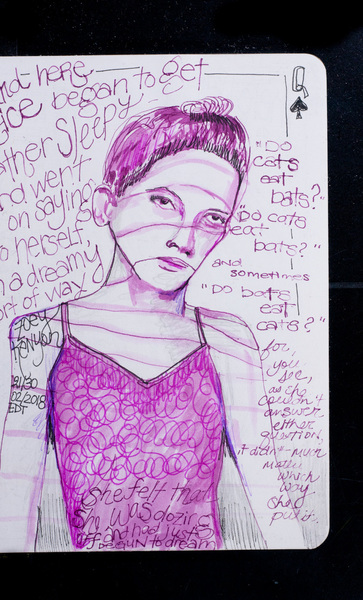 nd here
ice began to get
ather Sleepy
nd went
on saying
o herself
n a dreamy
ort of way
Q
"Do
cats
eat
bats?"
"Do cats
eat
bats?"
and
sometimes
"Do bats
eat
cats?"
for,
you
see,
as she
couldn't
answer
either
question,
it didn't much
matter
which
way
she
put it.
02/2018
EDT
She felt that
she was dozing
off and had just
begun to dream